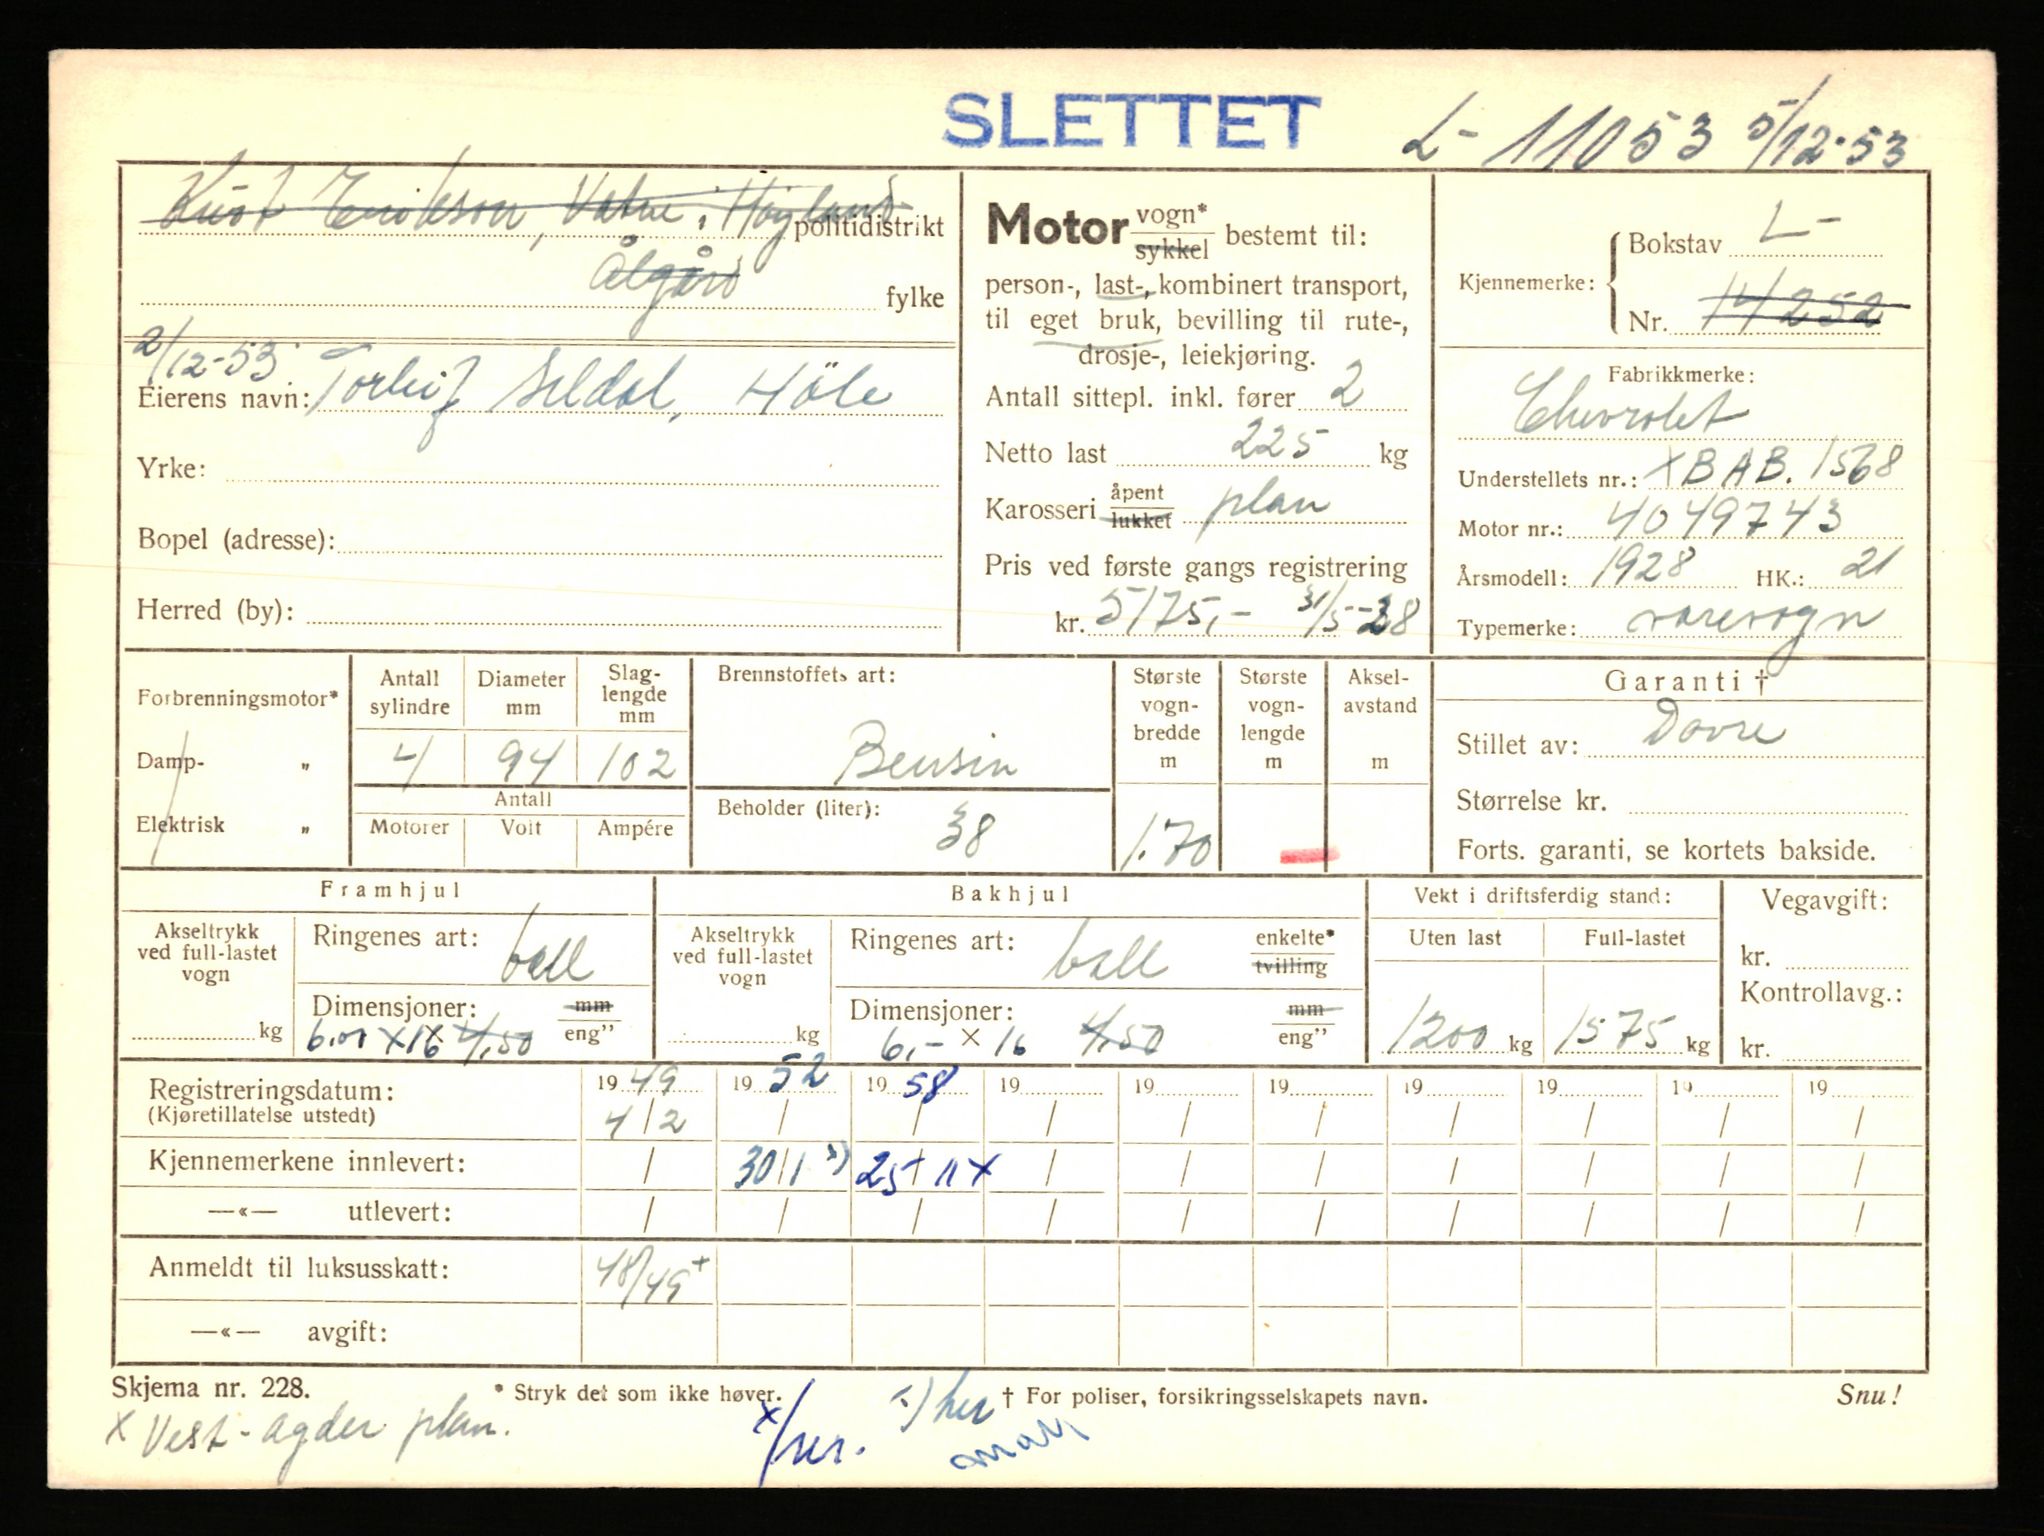 SLETTET L- 11053 5/12-53
Knut Erikson, Vatne, Høyland politidistrikt
Ålgård fylke
2/12-53
Eierens navn: Torleif Seldal, Höle
Yrke:
Bopel (adresse):
Herred (by):
Motor vogn* / sykkel bestemt til:
person-, last-, kombinert transport,
til eget bruk, bevilling til rute-,
drosje-, leiekjøring.
Antall sittepl. inkl. fører 2
Netto last 225 kg
Karosseri åpent / lukket plan
Pris ved første gangs registrering
kr. 5175,- 31/5-28
Kjennemerke: Bokstav L-
Nr. 14252
Fabrikkmerke:
Chevrolet
Understellets nr.: XBAB. 1568
Motor nr.: 4049743
Årsmodell: 1928 HK.: 21
Typemerke: varevogn
Forbrenningsmotor*
Damp- „
Elektrisk „
Antall sylindre 4
Diameter mm 94
Slag-lengde mm 102
Antall
Motorer Volt Ampére
Brennstoffets art:
Bensin
Beholder (liter):
38
Største vogn-bredde m 1.70
Største vogn-lengde m
Aksel-avstand m
Garanti †
Stillet av: Dovre
Størrelse kr.
Forts. garanti, se kortets bakside.
Framhjul
Akseltrykk ved full-lastet vogn
kg
Ringenes art: ball
Dimensjoner: mm / eng”
6,00 x 16 4,50
Bakhjul
Akseltrykk ved full-lastet vogn
kg
Ringenes art: ball enkelte* / tvilling
Dimensjoner: mm / eng”
6,- x 16 4,50
Vekt i driftsferdig stand:
Uten last Full-lastet
1200 kg 1575 kg
Vegavgift:
kr.
Kontrollavg.:
kr.
Registreringsdatum: 1949 1952 1958 19 19 19 19 19 19 19
(Kjøretillatelse utstedt) 4/2 / / / / / / / / /
Kjennemerkene innlevert: / 30/1 25/11 x / / / / / / /
—«— utlevert: / / / / / / / / / /
Anmeldt til luksusskatt: 48/49 +
—«— avgift:
Skjema nr. 228. * Stryk det som ikke høver. † For poliser, forsikringsselskapets navn. Snu!
x Vest-Agder plan.